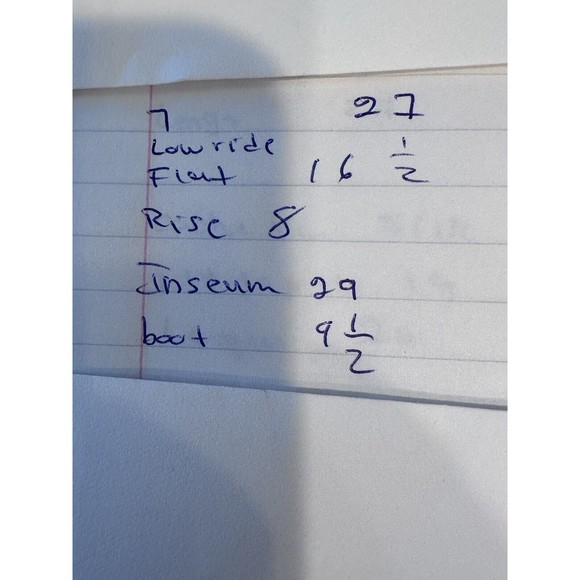 7 27
Lowride
Flat 16 1/2
Rise 8
Inseum 29
boot 9 1/2